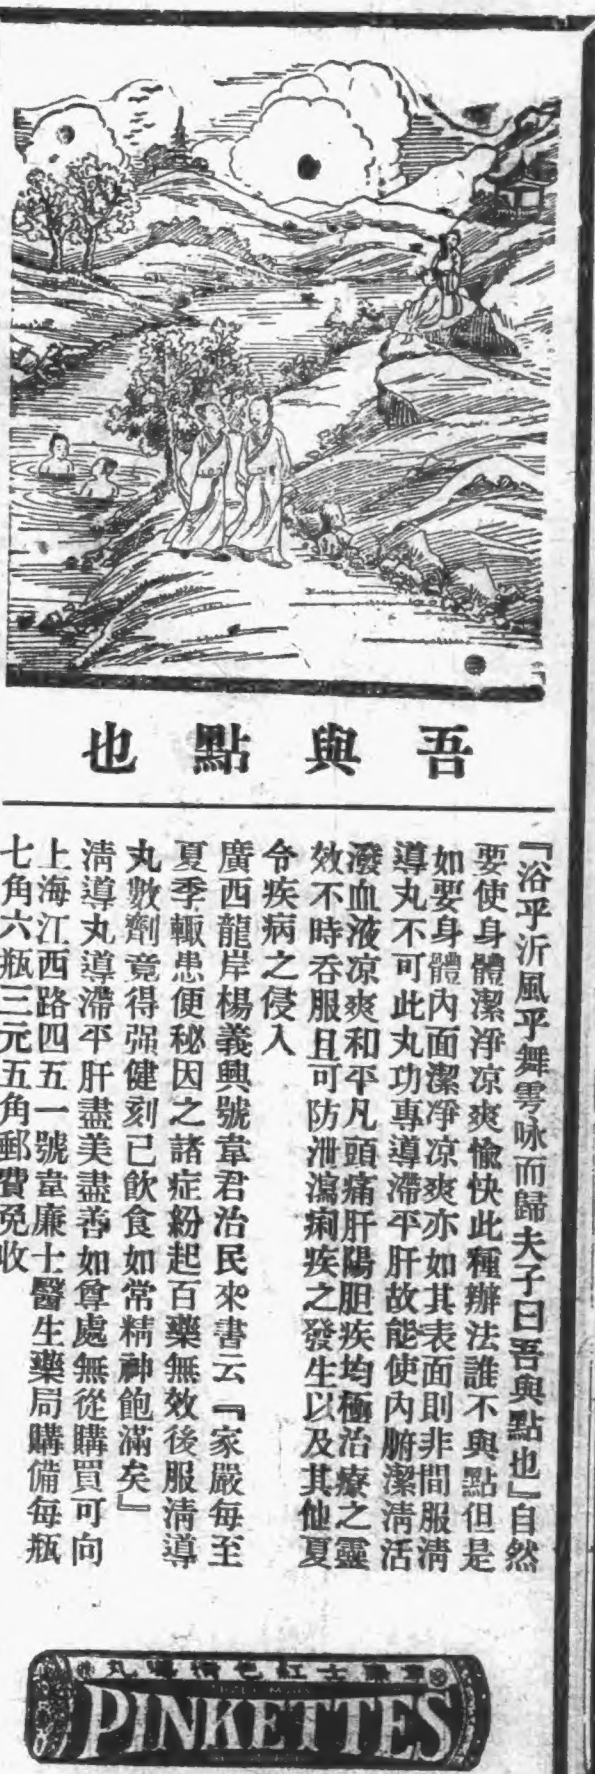 吾與點也
『浴乎沂風乎舞雩咏而歸夫子曰吾與點也』自然
要使身體潔淨凉爽愉快此種辦法誰不與點但是
如要身體內面潔淨凉爽亦如其表面則非間服淸
導丸不可此丸功專導滯平肝故能使內腑潔淸活
潑血液凉爽和平凡頭痛肝陽胆疾均極治療之靈
效不時吞服且可防泄瀉痢疾之發生以及其他夏
令疾病之侵入
廣西龍岸楊義興號韋君治民來書云『家嚴每至
夏季輙患便秘因之諸症紛起百藥無效後服淸導
丸數劑竟得强健刻已飲食如常精神飽滿矣』
淸導丸導滯平肝盡美盡善如尊處無從購買可向
上海江西路四五一號韋廉士醫生藥局購備每瓶
七角六瓶三元五角郵費免收
韋廉士紅色淸導丸
PINKETTES